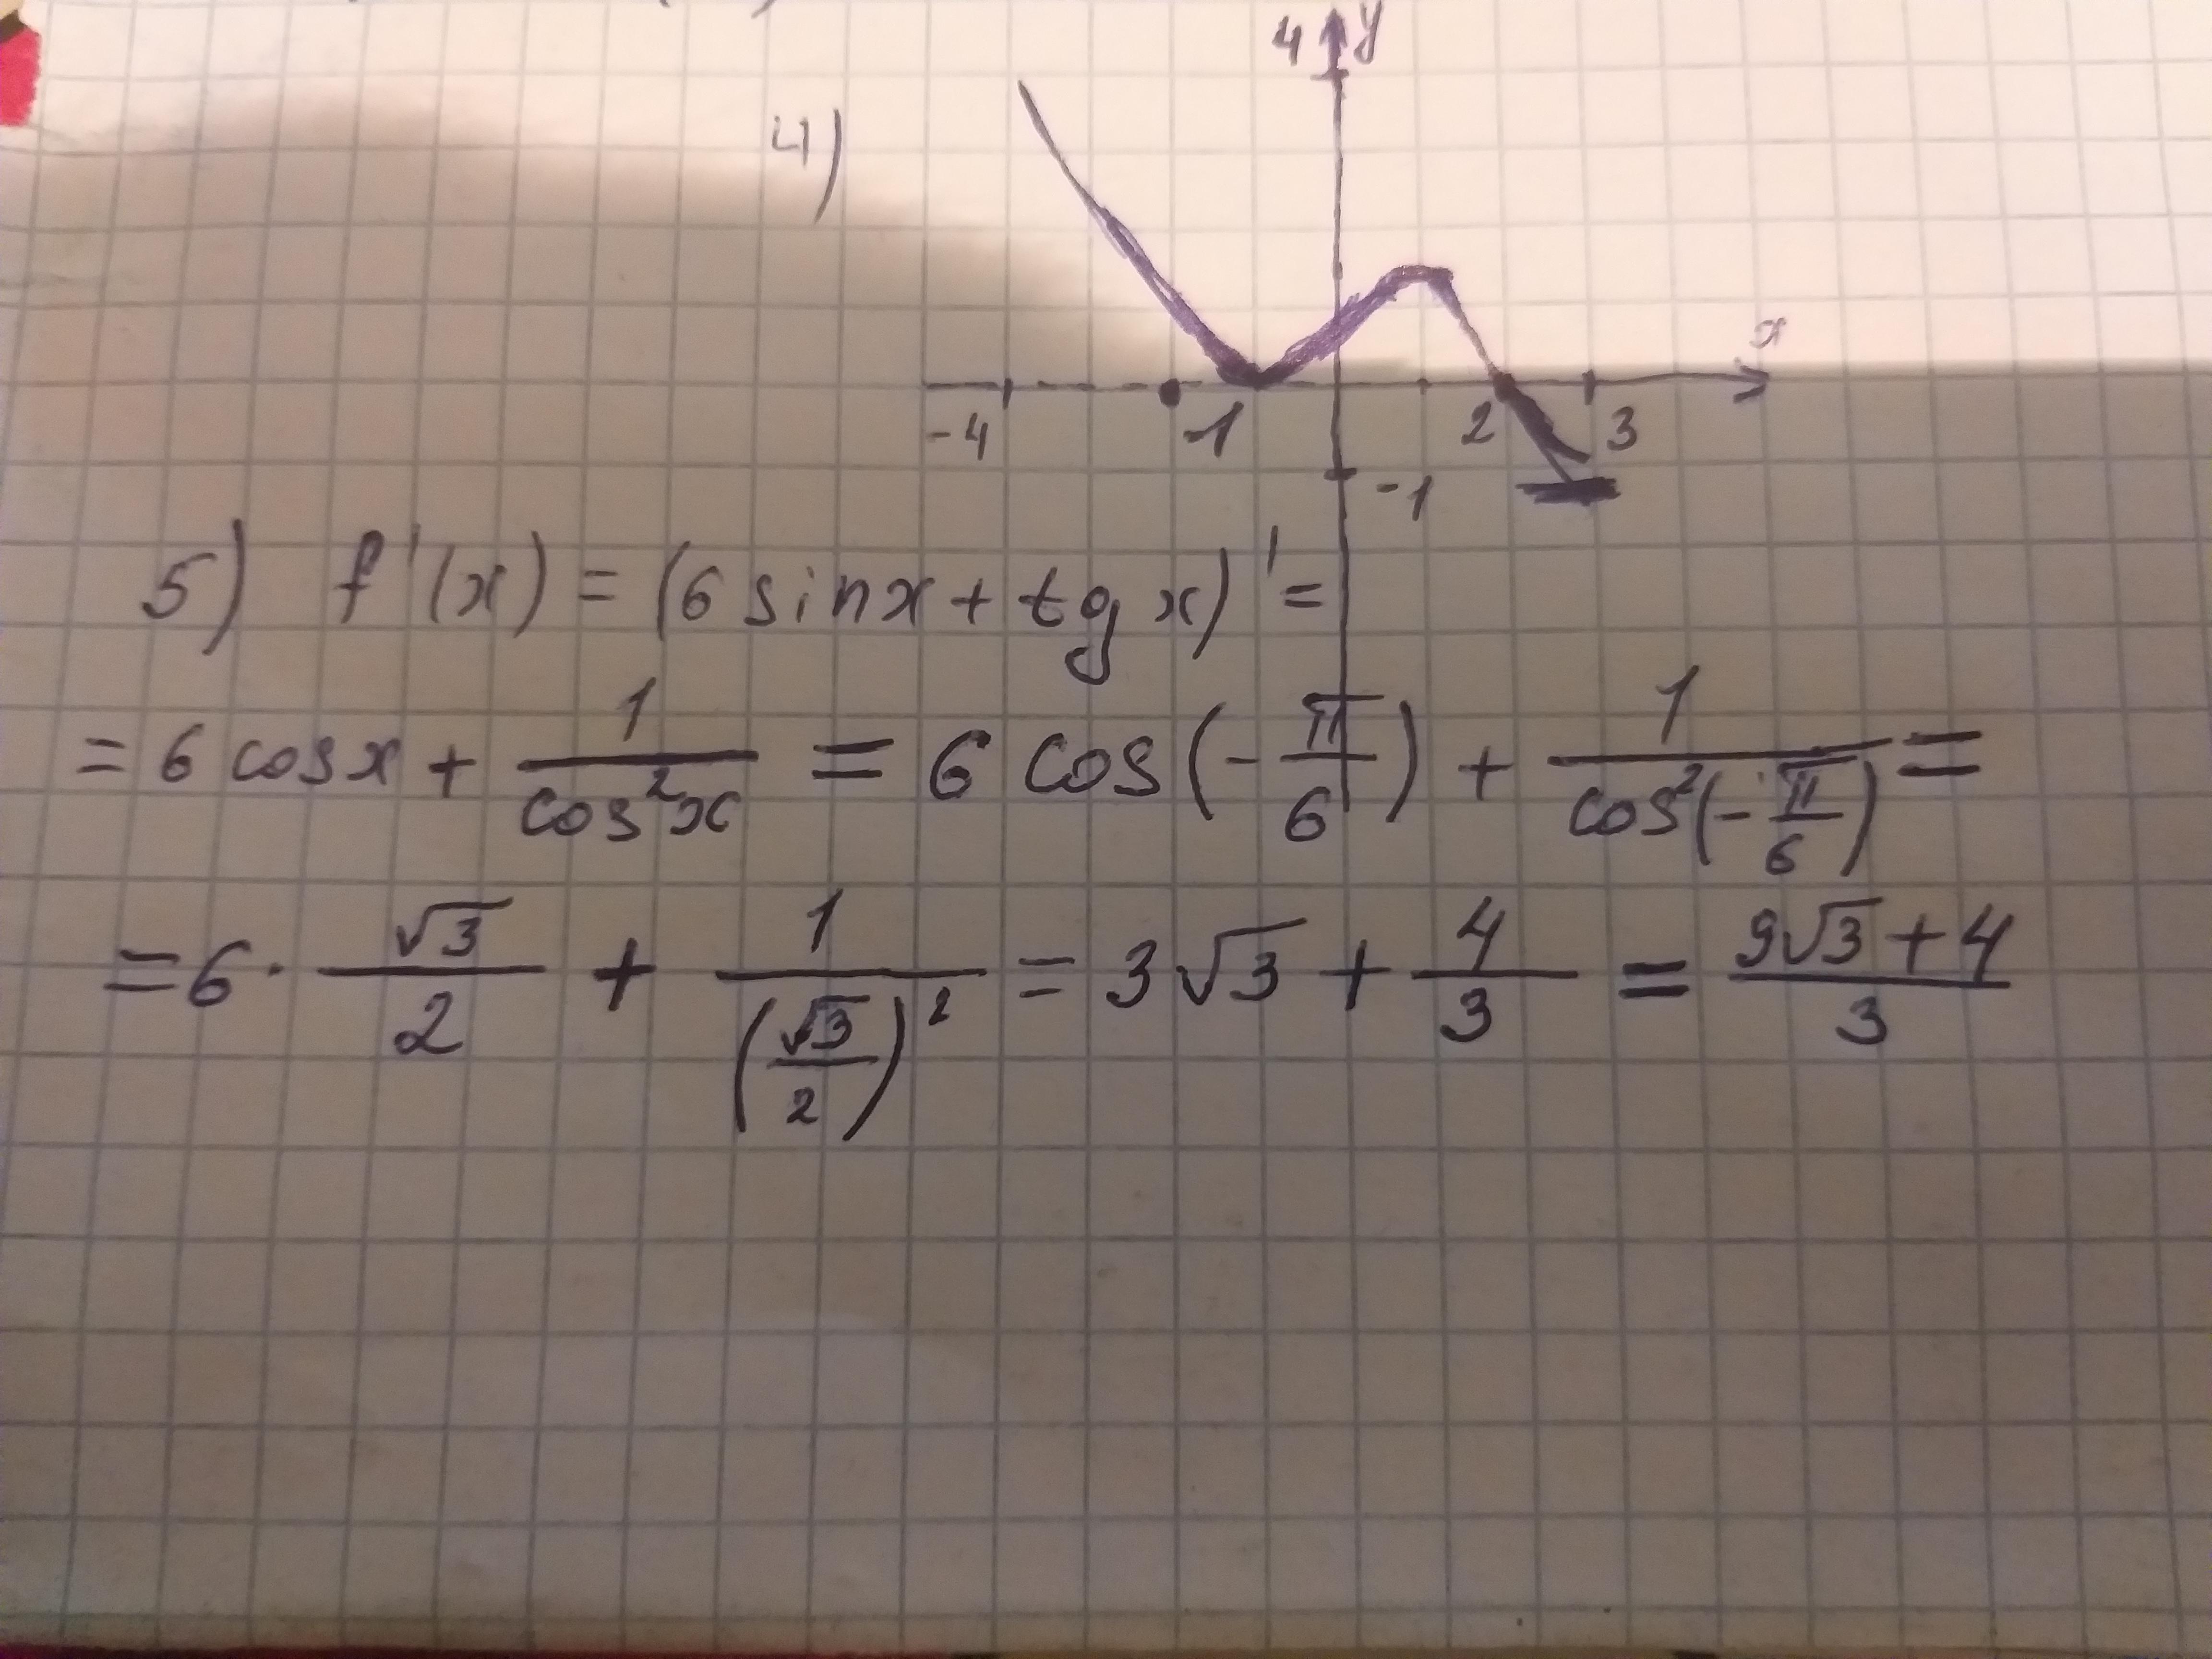 4 y
4)
x
-4 -1 2 3
-1
5) f'(x) = (6 sinx + tg x)' =
= 6 cosx + 1/cos²x = 6 cos(-π/6) + 1/cos²(-π/6) =
= 6 · √3/2 + 1/(√3/2)² = 3√3 + 4/3 = (9√3 + 4)/3